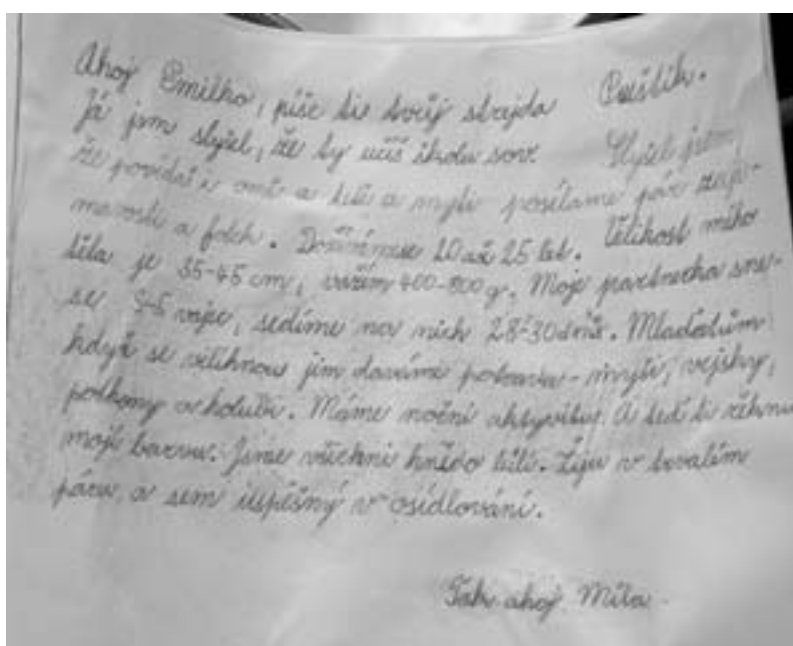 Ahoj Emilko, píše ti tvůj strejda Puštík.
Já jsem slyšel, že ty učíš školu sov. Slyšel jsem,
že povídal i o a myši posíláme pár zají-
mavostí a fotek. Dožíváme se 20 až 25 let. Velikost mého
těla je 35-45 cm, vážím 400-800 g. Moje partnerka sne-
se 3-5 vajec, sedíme na nich 28-30 dnů. Mláďatům
když se vilíhnou jim daváme potravu - myši, vejsky,
potkany a holuби. Máme noční aktyvitu. A teď ti řeknu
moji barvu. Jsme všichni hnědo bílí. Žiju v trvalím
páru a sem úspěšný v osídlování.
Tak ahoj Míla